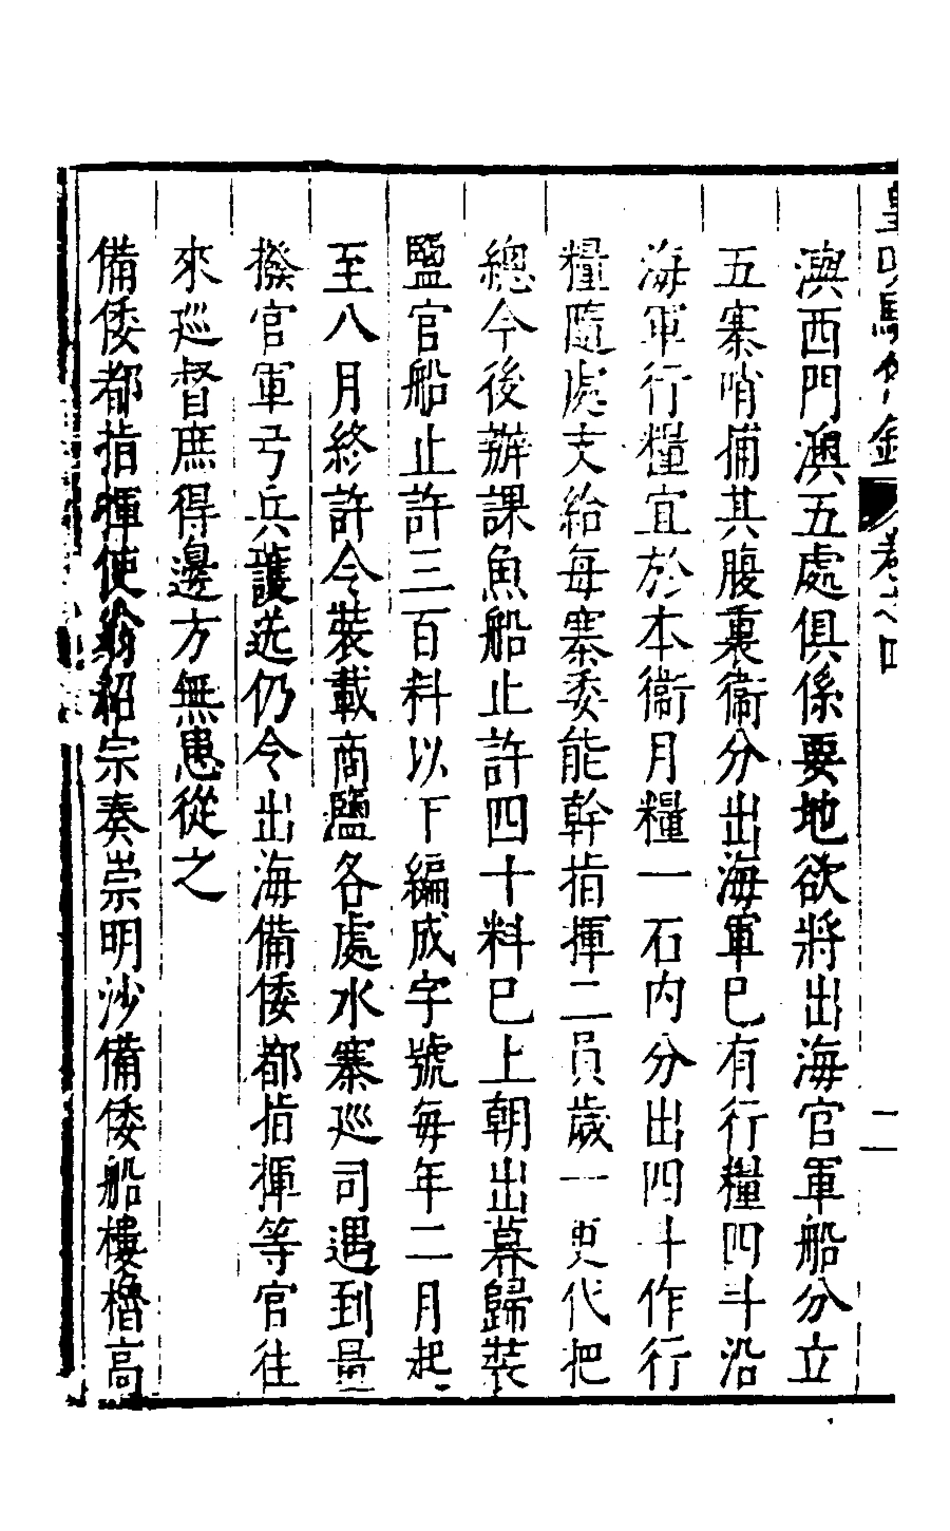 澳西門澳五處俱係要地欲將出海官軍船分立
五寨哨備其腹裏衞分出海軍巳有行糧四斗沿
海軍行糧宜於本衞月糧一石内分出四斗作行
糧隨處支給每寨委能幹指揮二員歲一更代把
總今後辦課魚船止許四十料巳上朝出暮歸裝
鹽官船止許三百料以下編成字號每年二月起
至八月終許令裝載商鹽各處水寨巡司遇到量
撥官軍弓兵護送仍令出海備倭都指揮等官往
來巡督庶得邊方無患從之
備倭都指揮使翁紹宗奏崇明沙備倭船樓櫓高